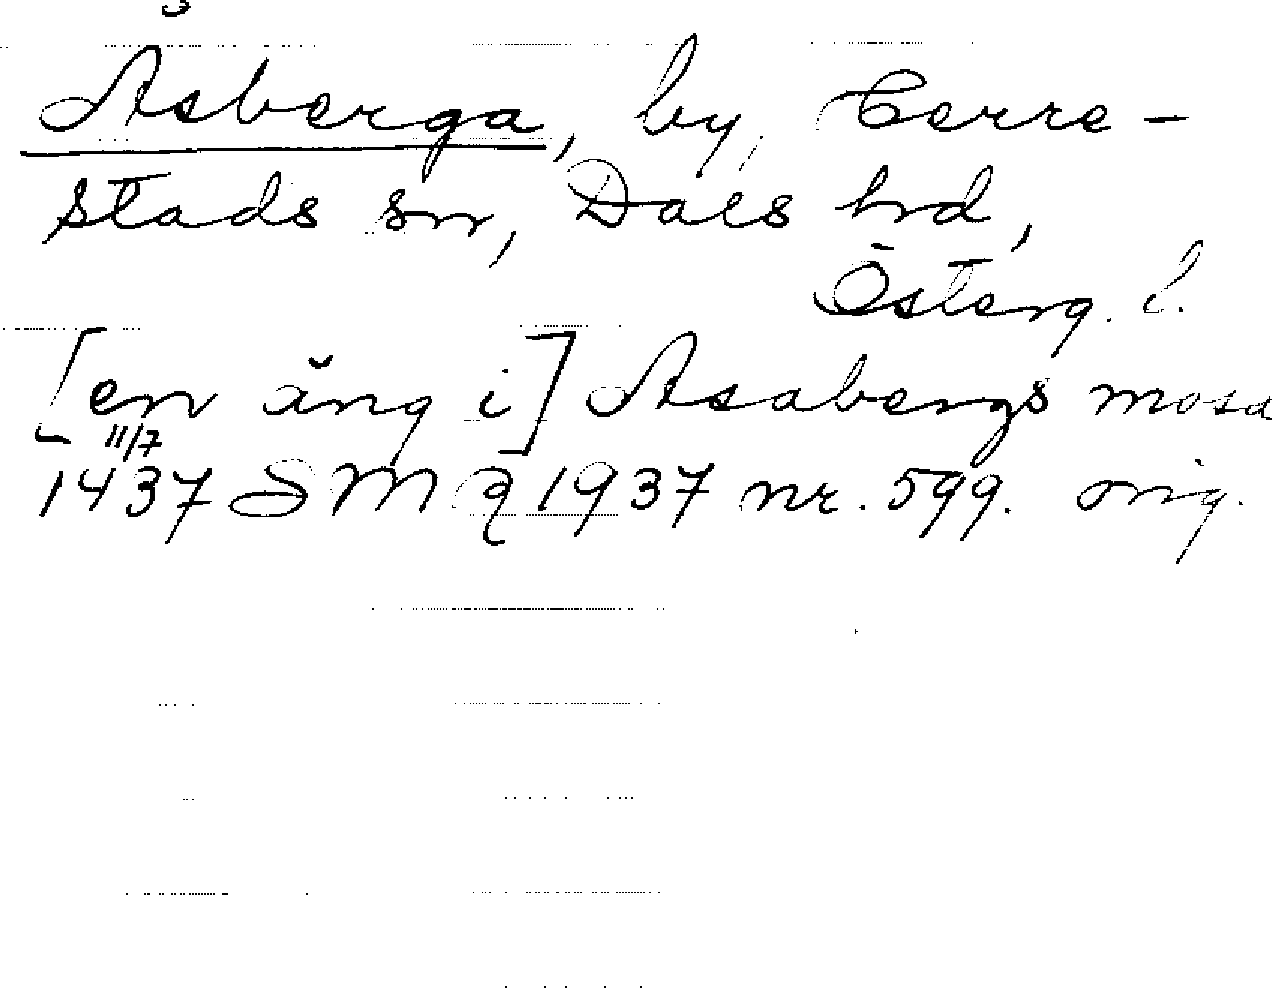 Åsberga, by, Herre-
stads sn, Dals hd,
Österg. l.
[en äng i] Asabergs mosa
11/7
1437 SMR 1937 nr. 599. orig.